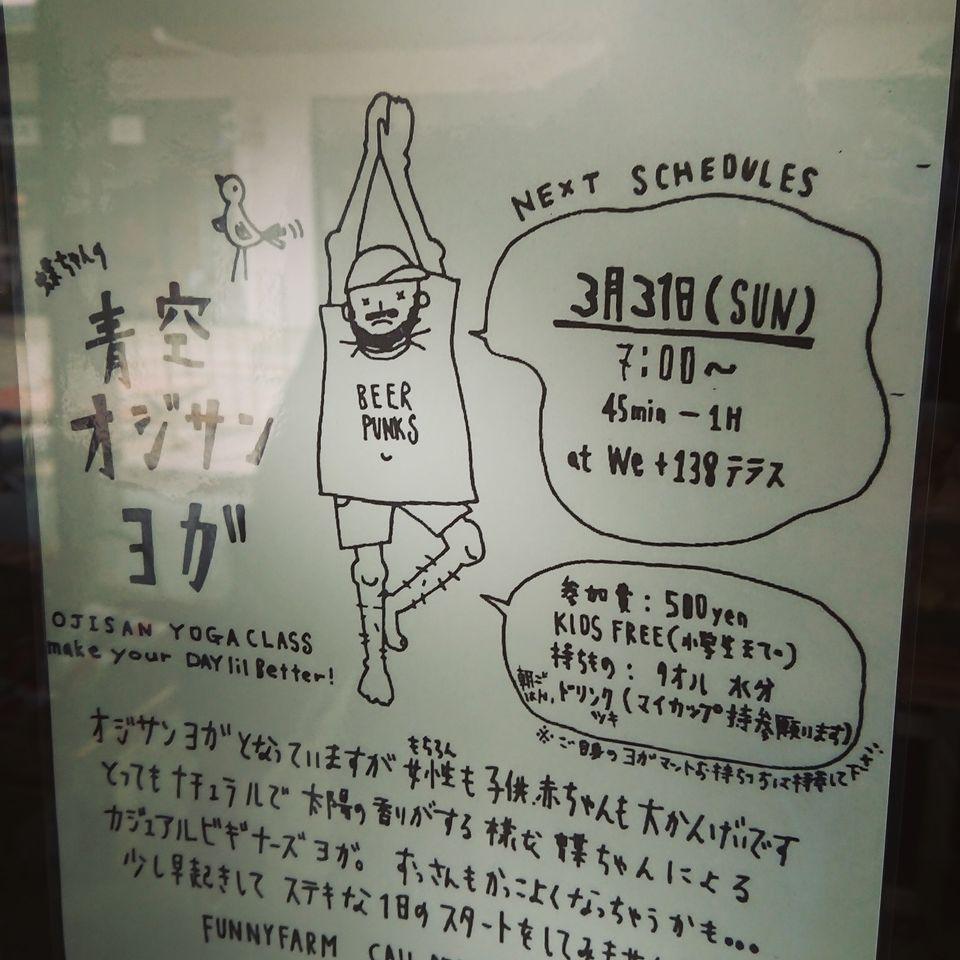 蝶ちゃんの
青空
オジサン
ヨガ
OJISAN YOGA CLASS
make your DAY lil Better!
BEER
PUNKS
NEXT SCHEDULES
3月31日(SUN)
7:00〜
45min — 1H
at We +138テラス
参加費:500yen
KIDS FREE(小学生まで)
持ちもの:タオル 水分
朝ごはん、ドリンクツキ(マイカップ持参願います)
※ご自身のヨガマットお持ちの方は持参して下さい
オジサンヨガとなっていますがもちろん女性も子供、赤ちゃんも大かんげいです
とってもナチュラルで太陽の香りがする様な蝶ちゃんによる
カジュアルビギナーズヨガ。おっさんもかっこよくなっちゃうかも...
少し早起きしてステキな1日のスタートをしてみませ
FUNNYFARM